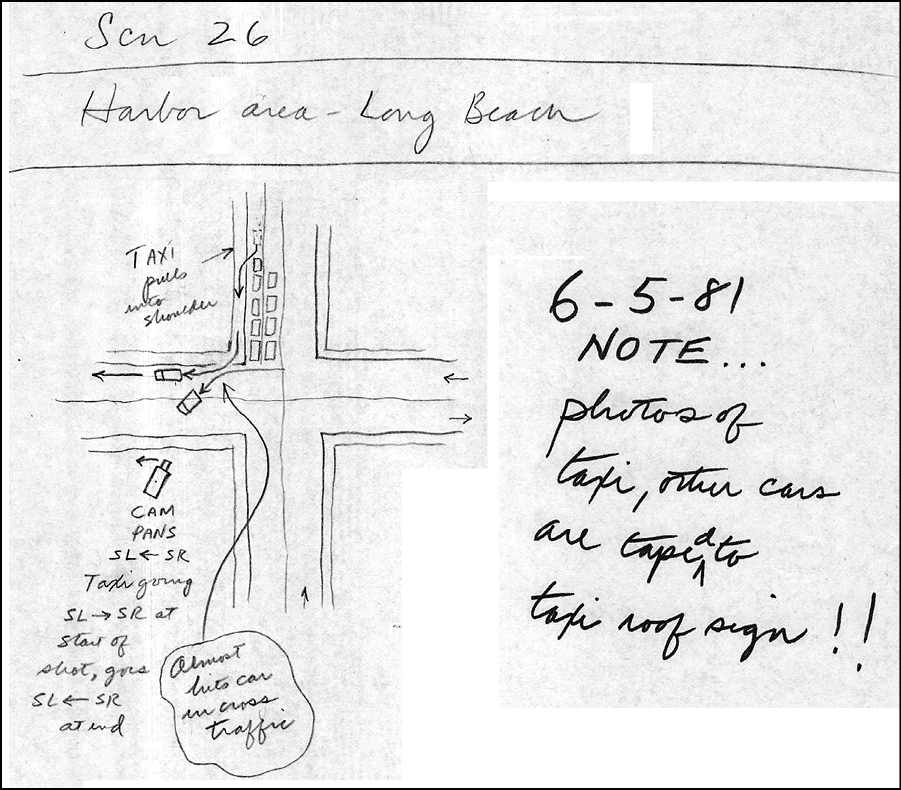 Scn 26
Harbor area - Long Beach
TAXI
pulls
into
shoulder
CAM
PANS
SL ← SR
Taxi going
SL → SR at
start of
shot, goes
SL ← SR
at end
Almost
hits car
in cross
traffic
6-5-81
NOTE...
photos of
taxi, other cars
are taped to
taxi roof sign!!